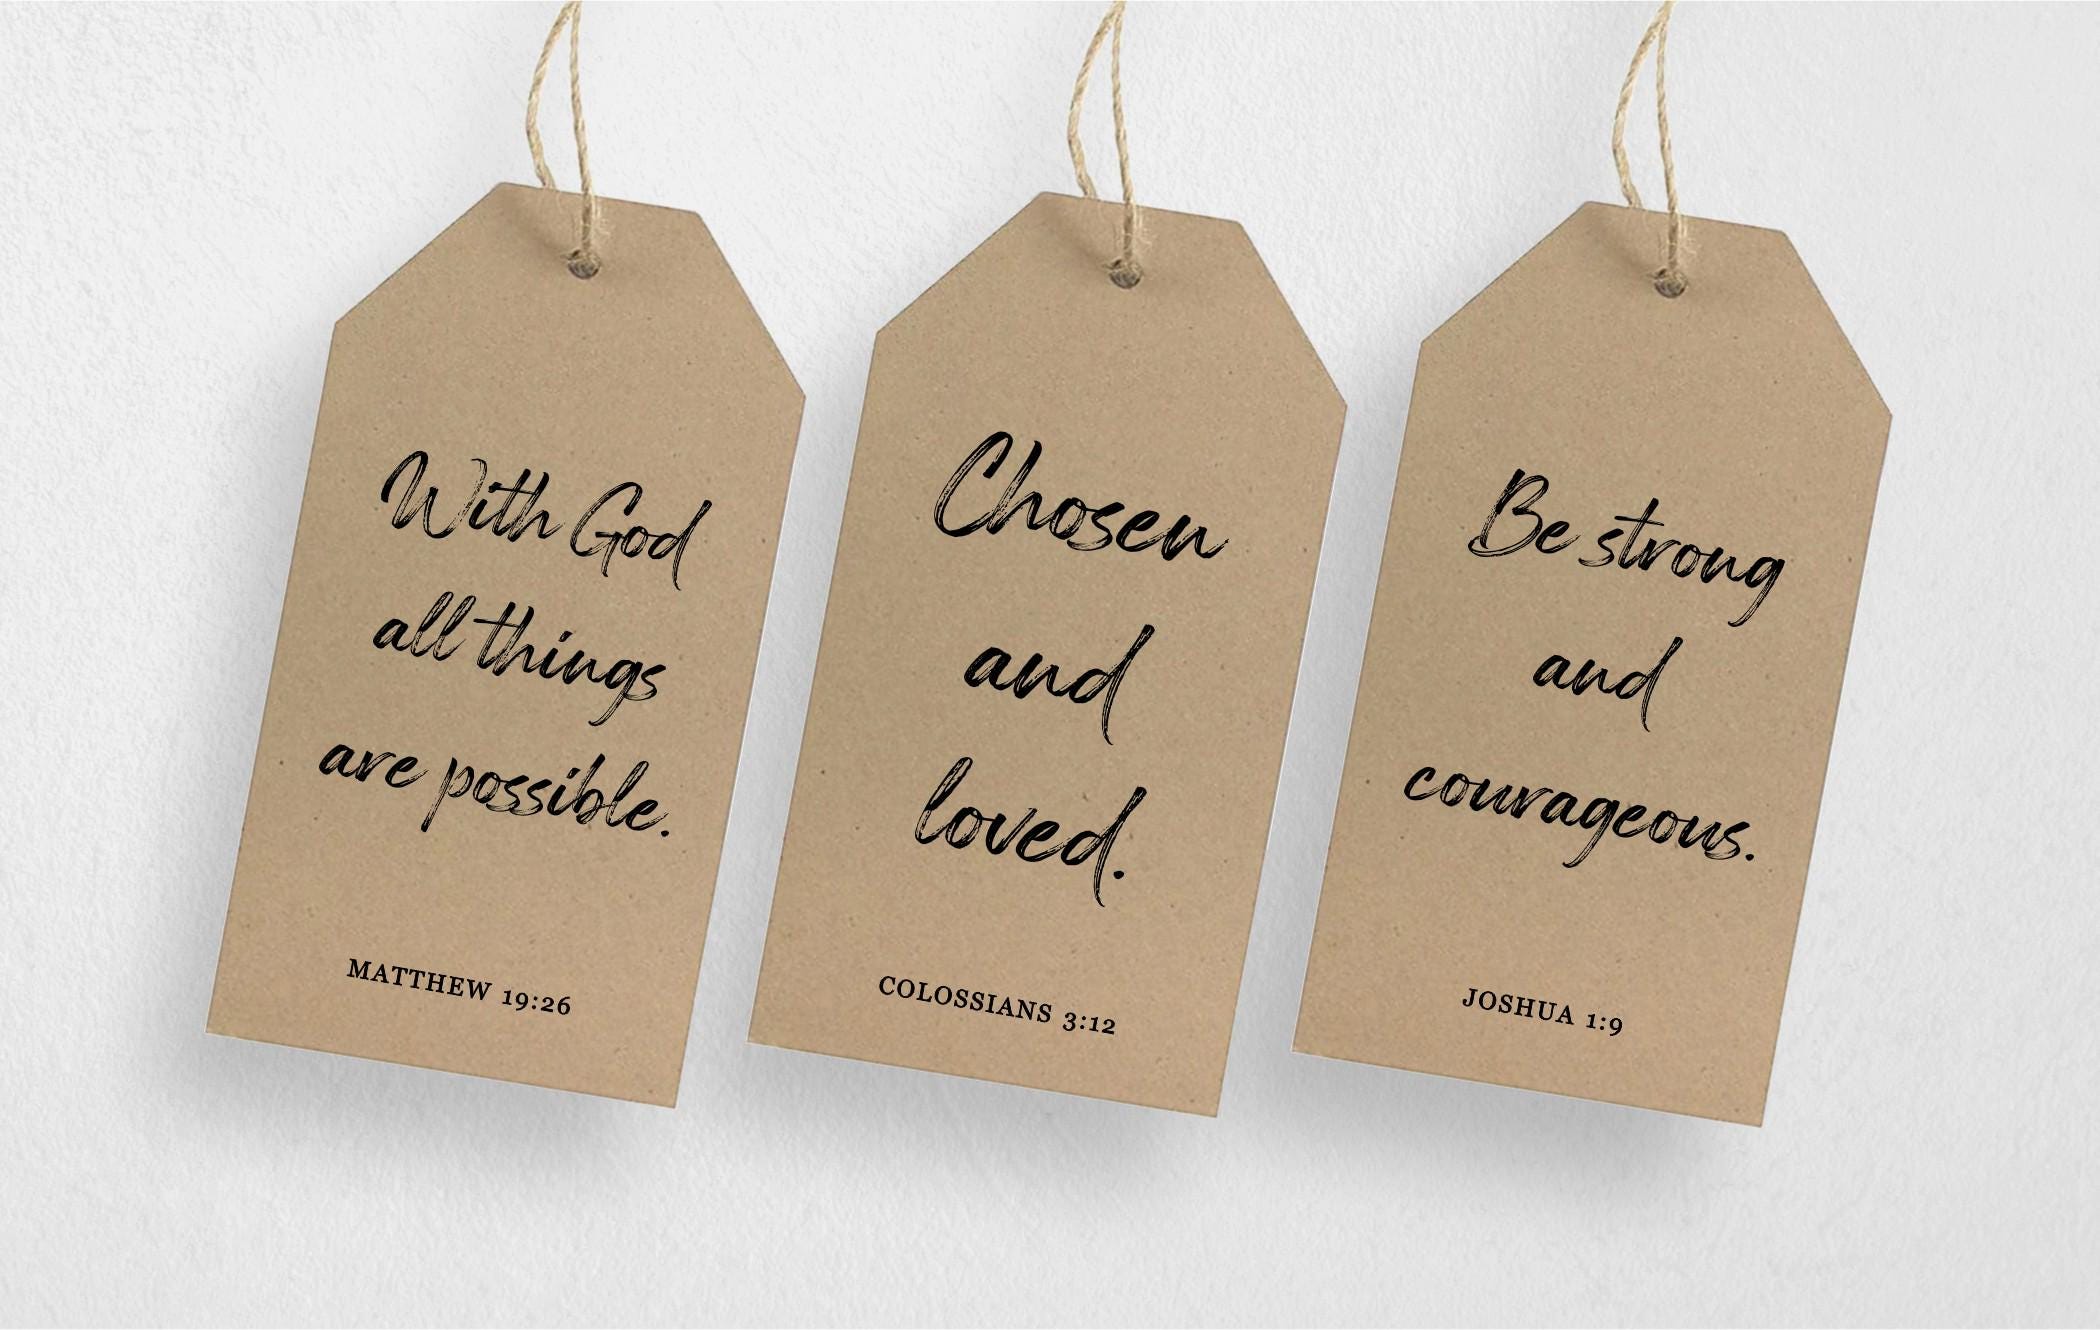 With God
all things
are possible.
MATTHEW 19:26
Chosen
and
loved.
COLOSSIANS 3:12
Be strong
and
courageous.
JOSHUA 1:9